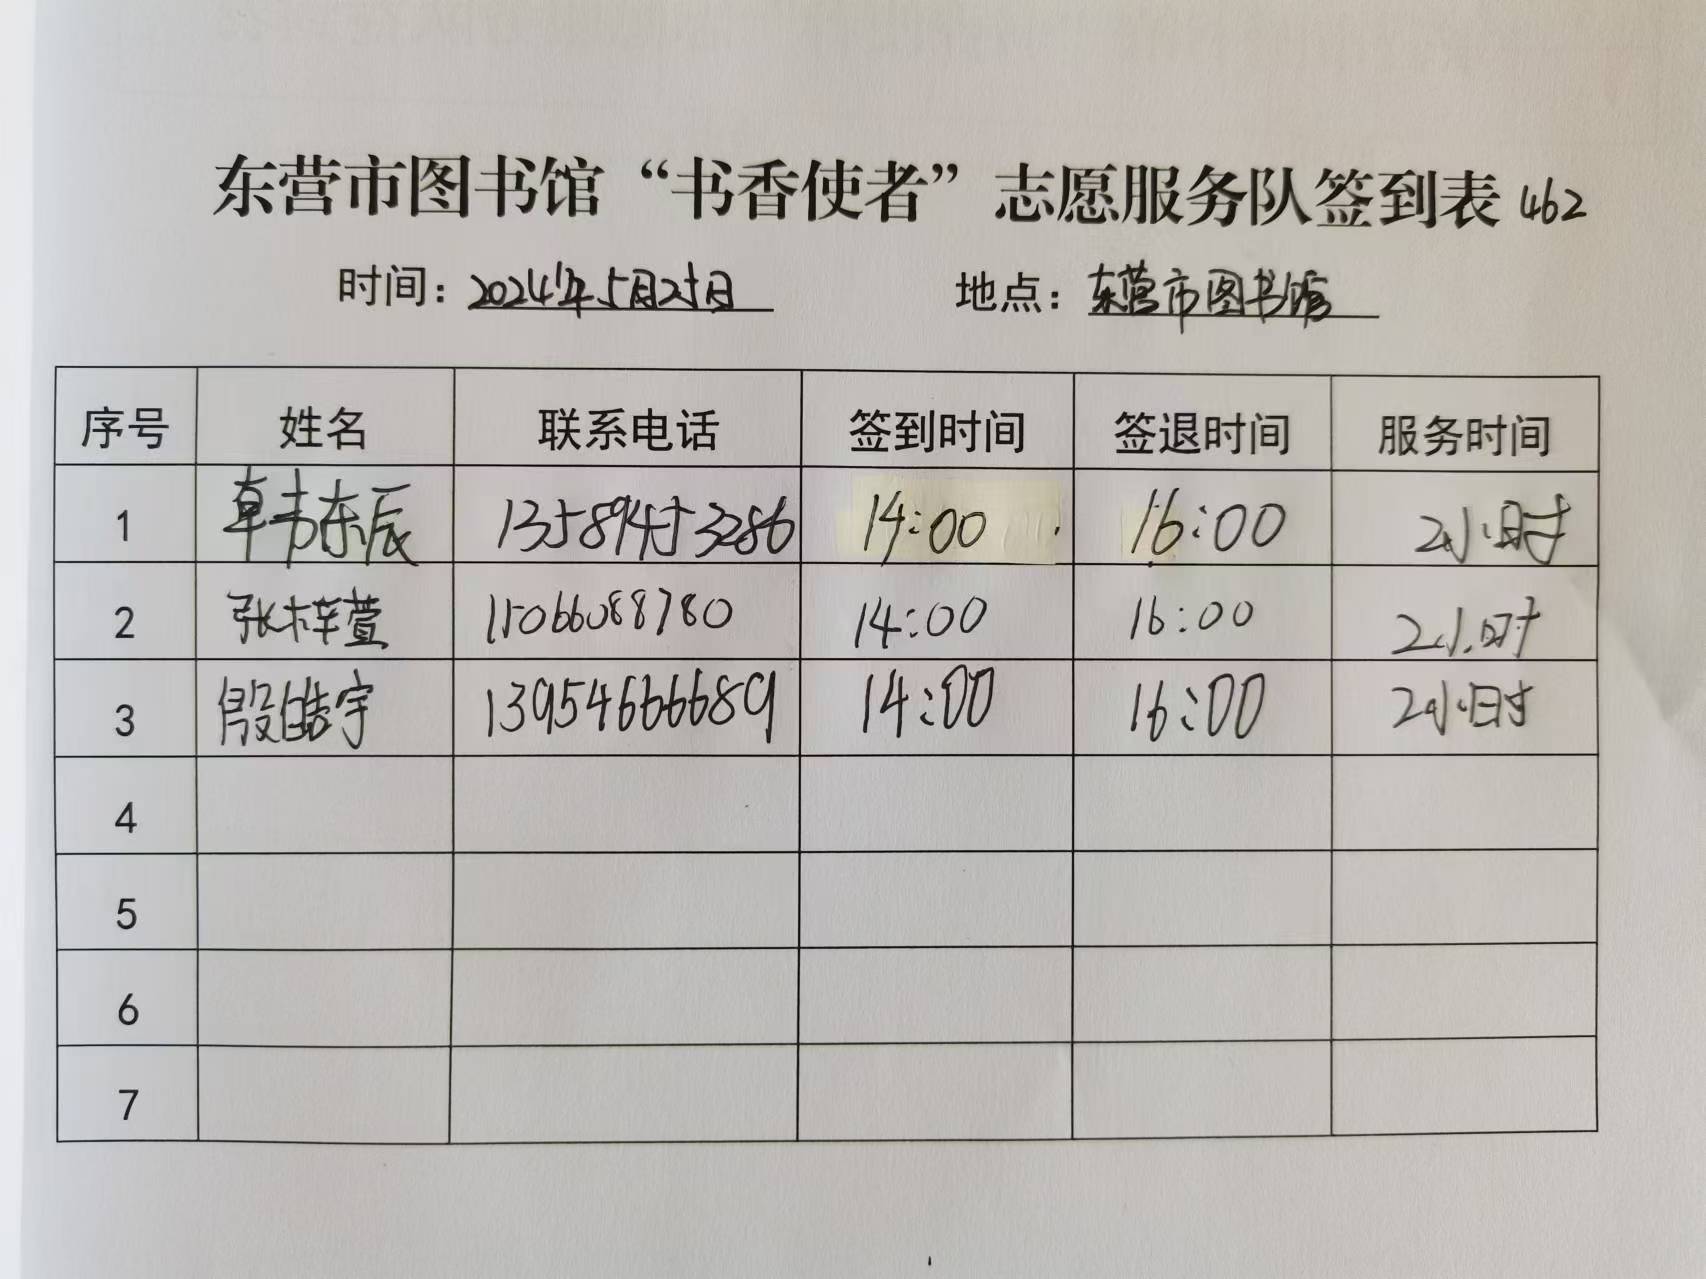 东营市图书馆“书香使者”志愿服务队签到表 462
时间：2024年5月25日 地点：东营市图书馆
序号 姓名 联系电话 签到时间 签退时间 服务时间
1 卓韦东辰 13589453286 14:00 16:00 2小时
2 张梓萱 15066088780 14:00 16:00 2小时
3 殷皓宇 13954666689 14:00 16:00 2小时
4
5
6
7